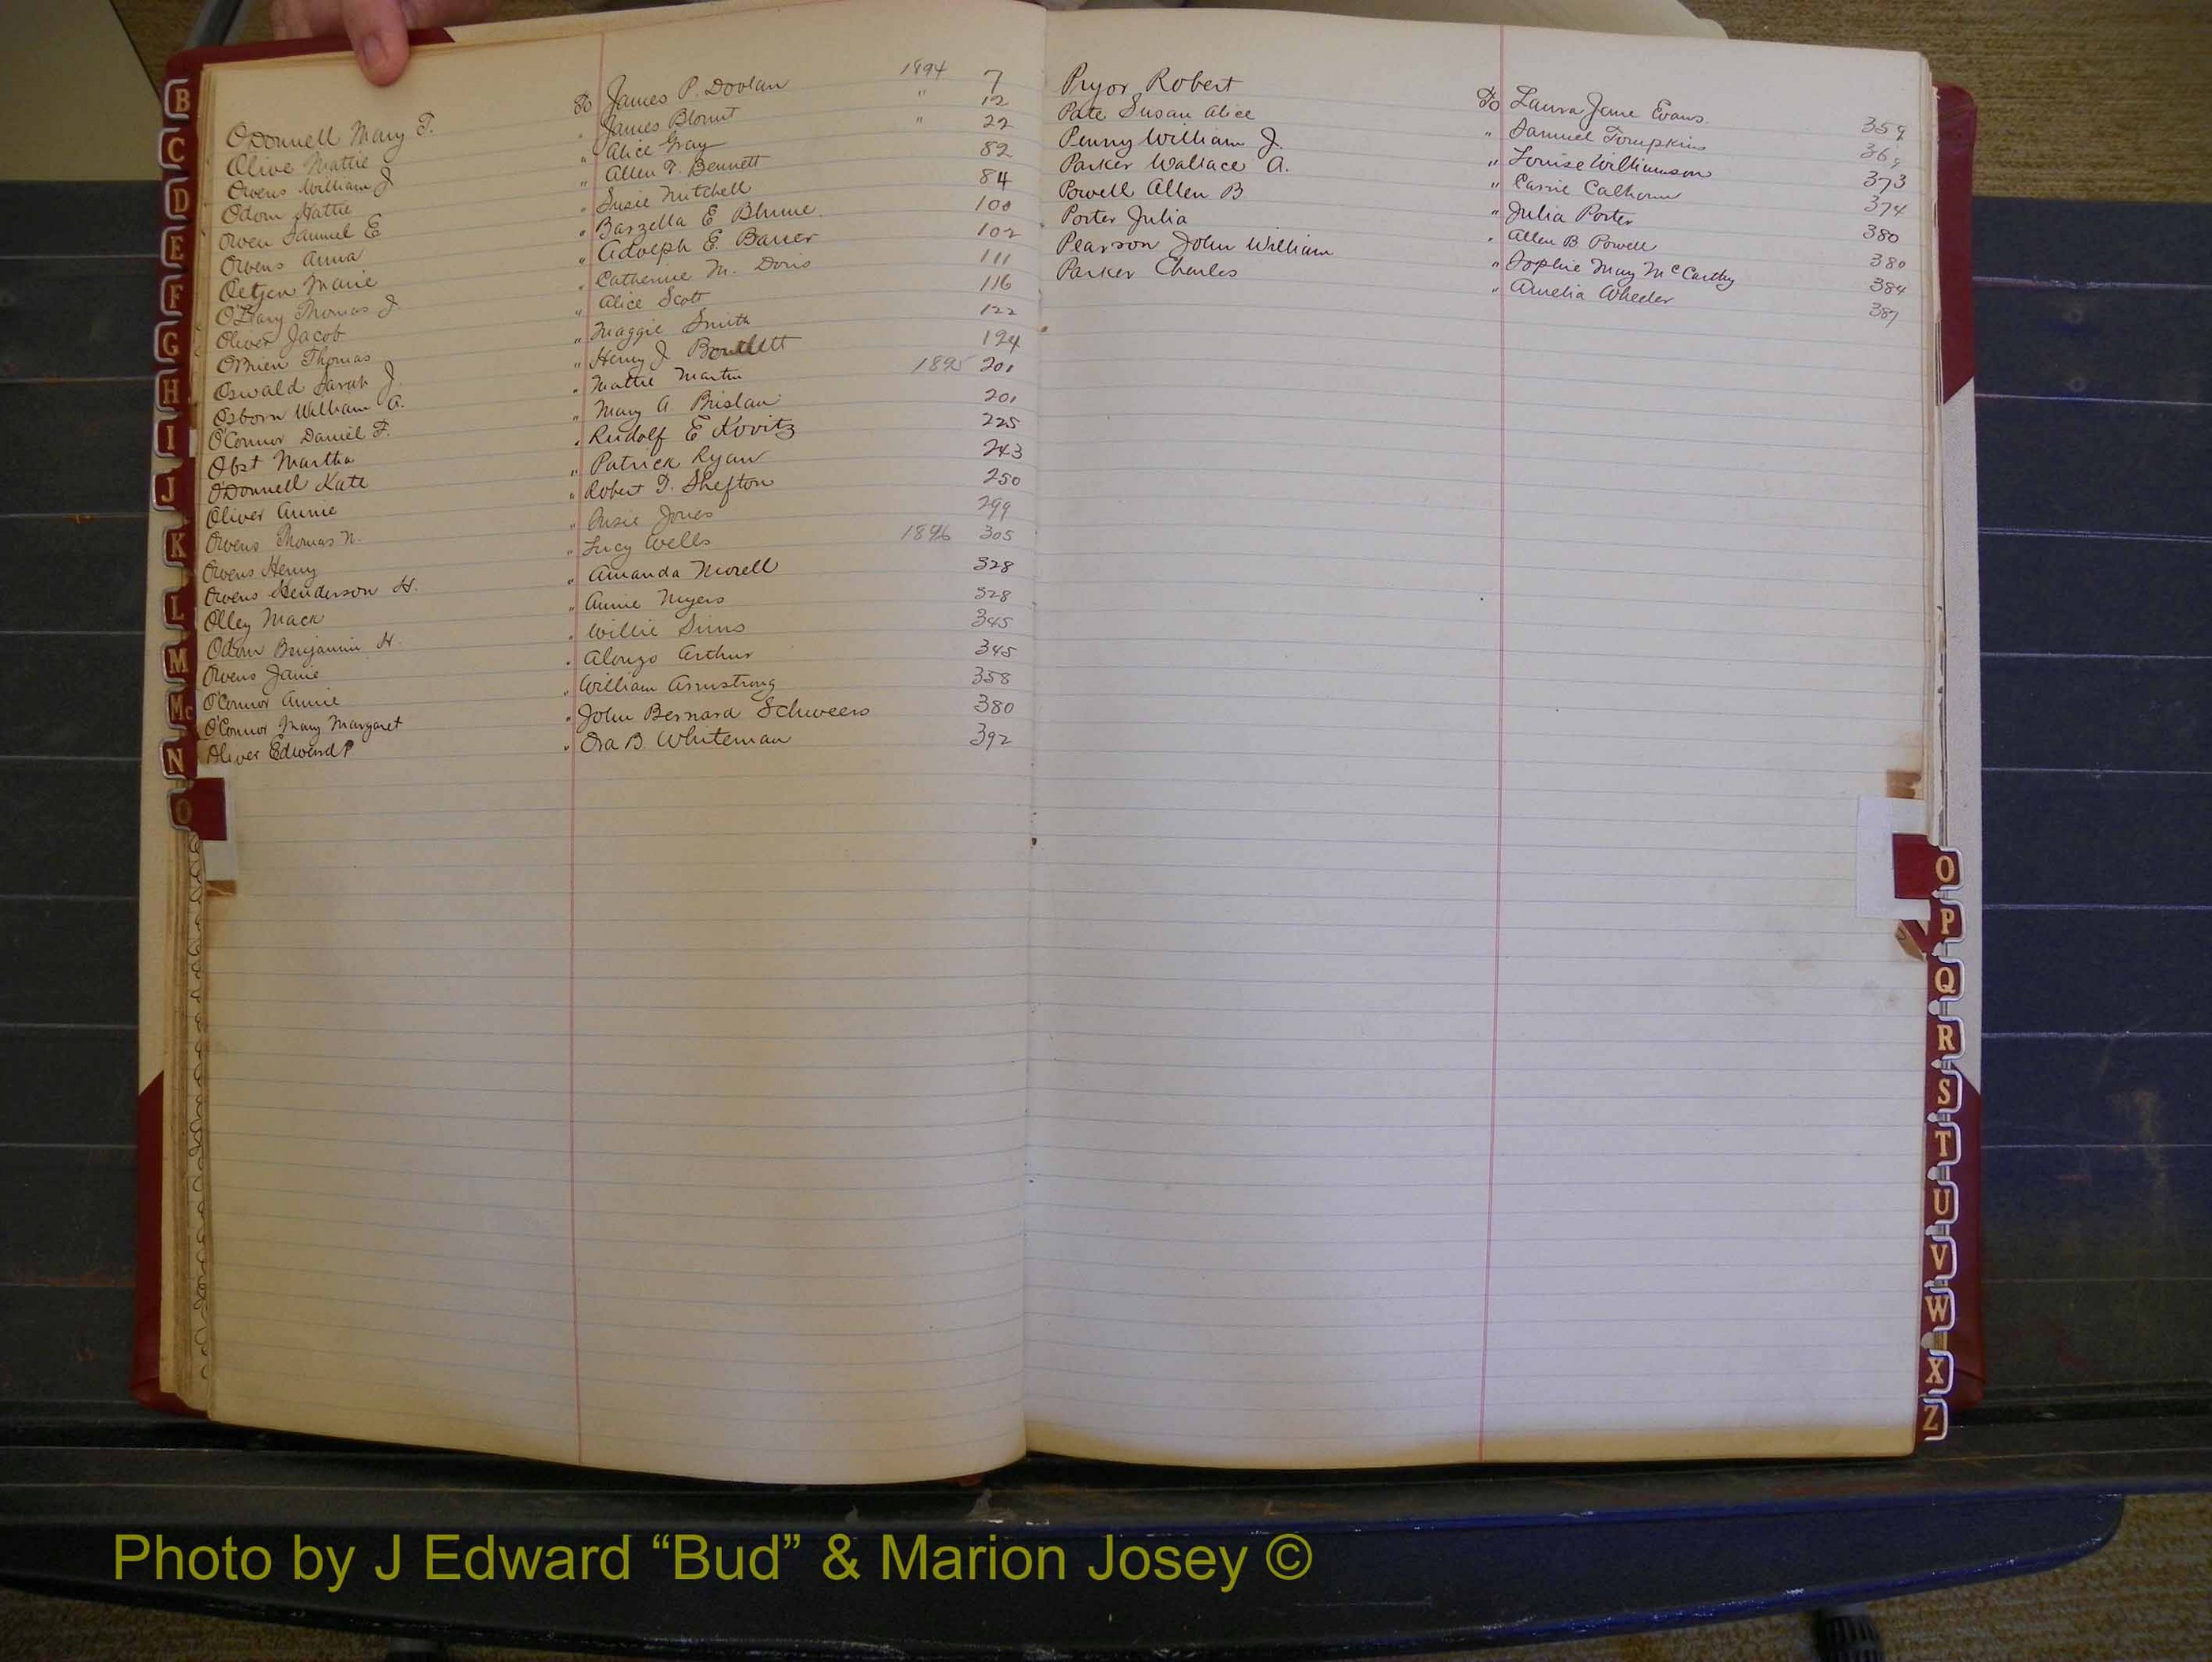 O'Donnell Mary T. To James P. Doolan 1894 7
Olive Mattie " James Blount " 12
Owens William J " Alice Gray " 22
Odom Hattie " Allen T. Bennett 82
Owen Samuel E " Susie Mitchell 84
Owens Anna " Barzella E Blume 100
Oetjen Marie " Adolph E. Bauer 102
O'Leary Thomas J. " Catherine M. Doris 111
Oliver Jacob " Alice Scott 116
O'Brien Thomas " Maggie Smith 122
Oswald Sarah J. " Henry J 194
Osborn William A. " Mattie Martin 1895 201
O'Connor Daniel F. " Mary A. Brislan 201
Obst Martha " Rudolf E Kovitz 225
O'Donnell Kate " Patrick Ryan 243
Oliver Annie " Robert D. Shefton 250
Owens Thomas N. " Susie Jones 299
Owens Henry " Lucy Wells 1896 305
Owens Henderson H. " Amanda Morell 328
Olley Mack " Annie Myers 328
Odom Benjamin H. " Willie Sims 345
Owens Janie " Alonzo Arthur 345
O'Connor Annie " William Armstrong 358
O'Connor Mary Margaret " John Bernard Schweers 380
Oliver Edward P " Ora B. Whiteman 392
Pryor Robert To Laura Jane Evans 359
Pate Susan Alice " Samuel Tompkins 369
Penny William J. " Louise Williamson 373
Parker Wallace A. " Carrie Calhoun 374
Powell Allen B " Julia Porter 380
Porter Julia " Allen B. Powell 380
Pearson John William " Sophie May McCarthy 384
Parker Charles " Amelia Wheeler 387
B
C
D
E
F
G
H
I
J
K
L
M
Mc
N
O
O
P
Q
R
S
T
U
V
W
X
Z
Photo by J Edward “Bud” & Marion Josey ©